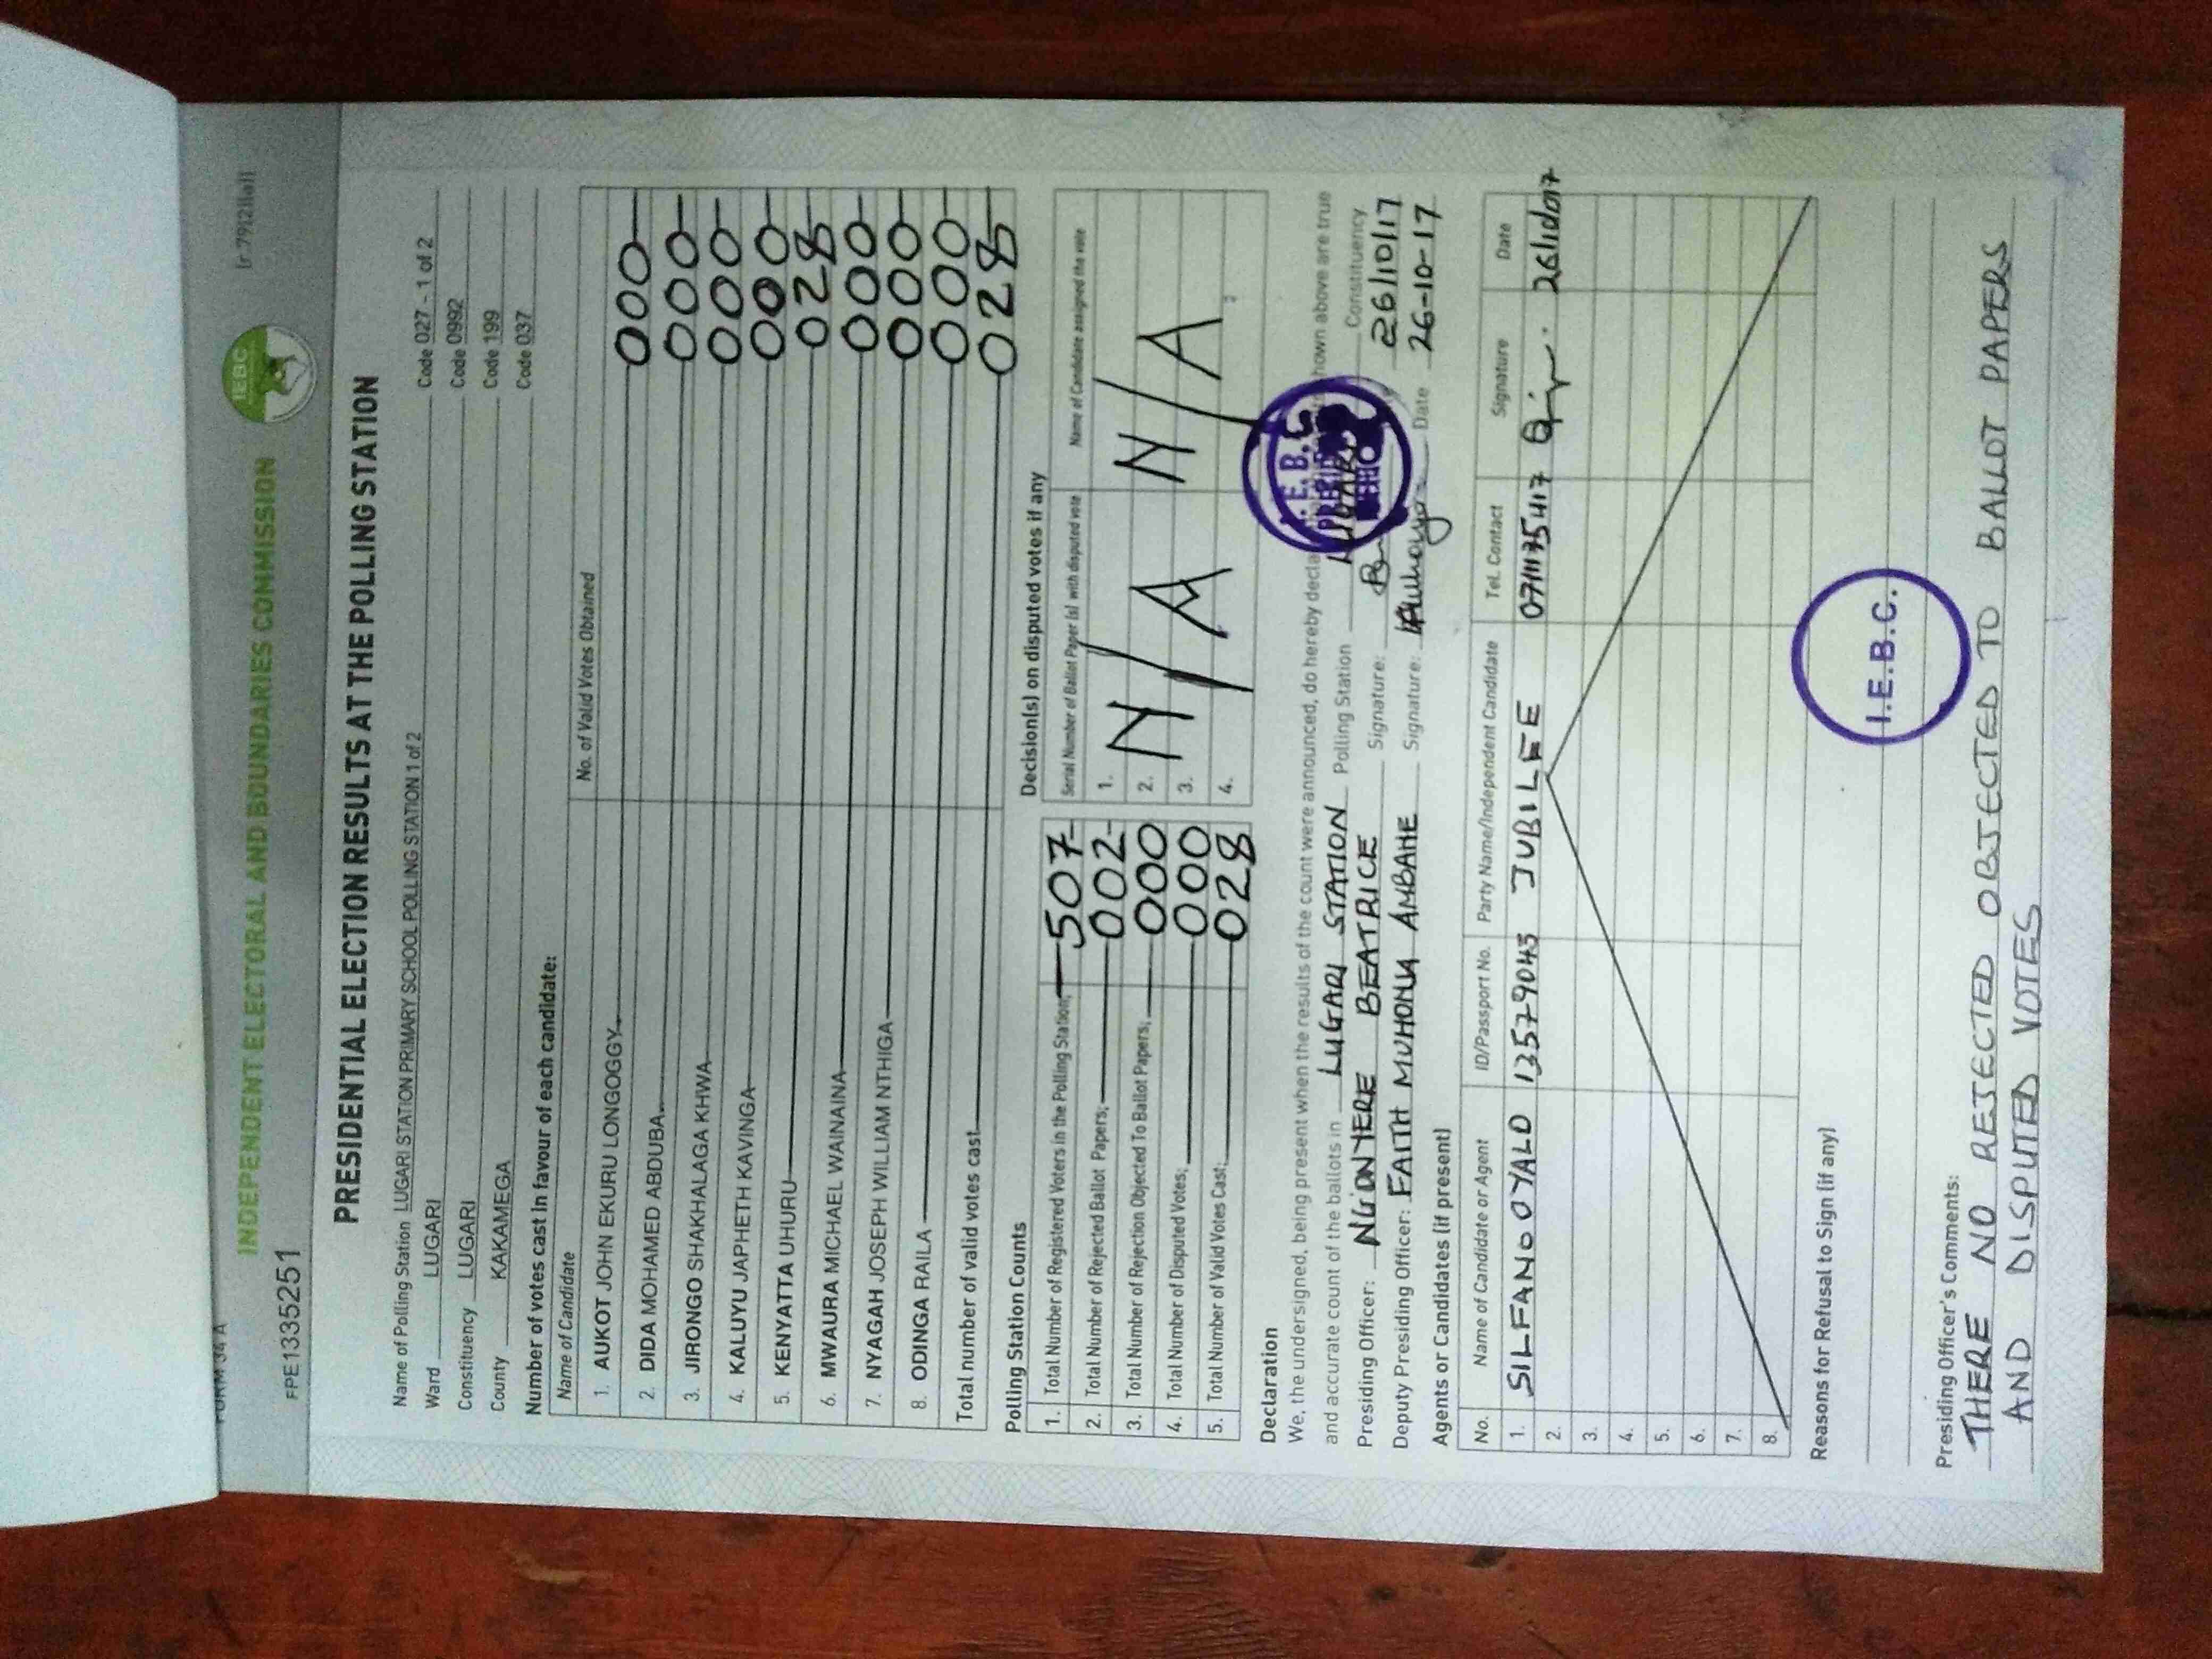 FORM 34 A
INDEPENDENT ELECTORAL AND BOUNDARIES COMMISSION
IEBC
FPE1335251
PRESIDENTIAL ELECTION RESULTS AT THE POLLING STATION
Name of Polling Station LUGARI STATION PRIMARY SCHOOL POLLING STATION 1 of 2 Code 027 - 1 of 2
Ward LUGARI Code 0992
Constituency LUGARI Code 199
County KAKAMEGA Code 037
Number of votes cast in favour of each candidate:
Name of Candidate No. of Valid Votes Obtained
1. AUKOT JOHN EKURU LONGOGGY 000
2. DIDA MOHAMED ABDUBA 000
3. JIRONGO SHAKHALAGA KHWA 000
4. KALUYU JAPHETH KAVINGA 000
5. KENYATTA UHURU 028
6. MWAURA MICHAEL WAINAINA 000
7. NYAGAH JOSEPH WILLIAM NTHIGA 000
8. ODINGA RAILA 000
Total number of valid votes cast 028
Polling Station Counts
1. Total Number of Registered Voters in the Polling Station; 507
2. Total Number of Rejected Ballot Papers; 002
3. Total Number of Rejection Objected To Ballot Papers; 000
4. Total Number of Disputed Votes; 000
5. Total Number of Valid Votes Cast; 028
Decision(s) on disputed votes if any
Serial Number of Ballot Paper (s) with disputed vote Name of Candidate assigned the vote
1.
2. N/A N/A
3.
4.
Declaration
We, the undersigned, being present when the results of the count were announced, do hereby shown above are true
and accurate count of the ballots in LUGARI STATION Polling Station LUGARI Constituency
Presiding Officer: NG'ONYERE BEATRICE Signature: 26/10/17
Deputy Presiding Officer: FAITH MUHONJA AMBAHE Signature: Date 26-10-17
I.E.B.C
Agents or Candidates (if present)
No. Name of Candidate or Agent ID/Passport No. Party Name/Independent Candidate Tel. Contact Signature Date
1. SILFANO OYALO 13579045 JUBILEE 0711175417
2.
3.
4.
5.
6.
7.
8.
Reasons for Refusal to Sign (if any)
I.E.B.C.
Presiding Officer's Comments:
THERE NO REJECTED OBJECTED TO BALLOT PAPERS
AND DISPUTED VOTES